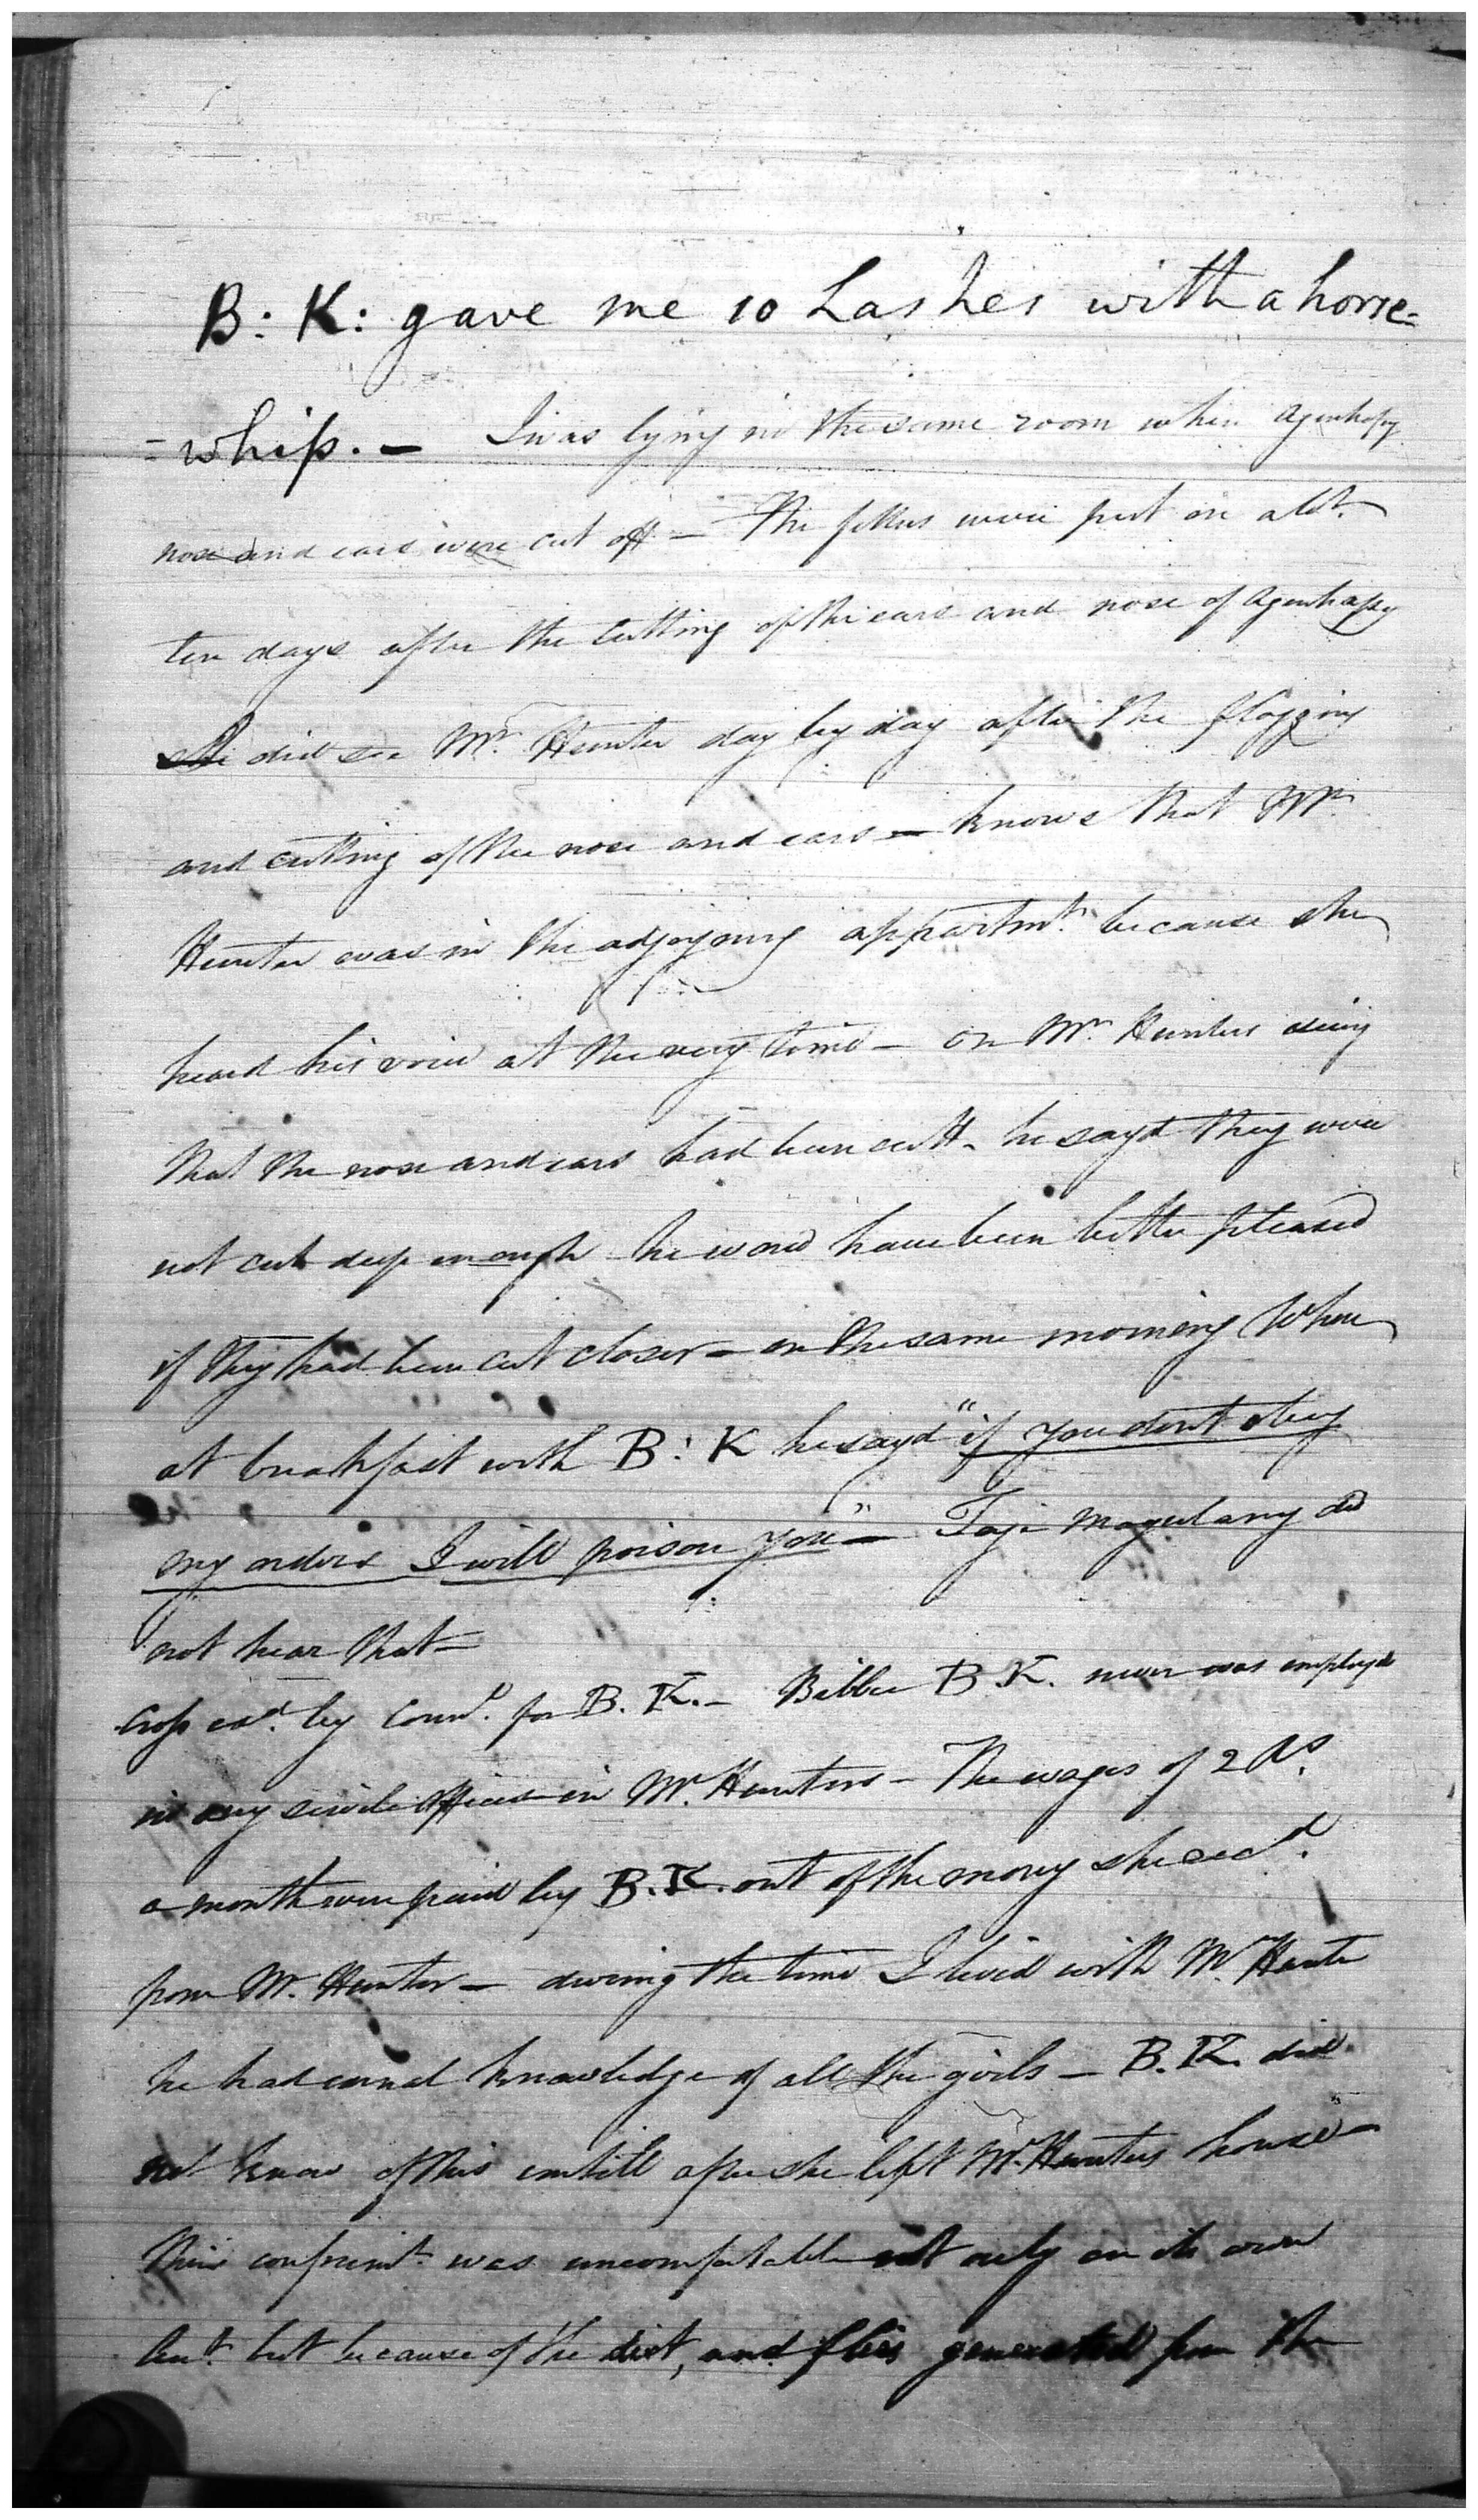 B: K: gave me 10 Lashes with a horse-
=whip. — I was lying in the same room when Agenhapy
nose and ears were cut off — The fetters were put on abt.
ten days after the cutting of the ears and nose of Agenhapy
She did see Mr. Hunter day by day after the flogging
and cutting of the nose and ears — knows that Mr.
Hunter was in the adjoyning appartmt. because she
heard his voice at the very time — on Mr. Hunters seeing
that the nose and ears had been cutt — he sayd they were
not cut deep enough he woud have been better pleased
if they had been cut closer — on the same morning when
at breakfast with B: K he sayd "if you dont obey
my orders I will poison you" — Taje Magulany did
not hear that —
Cross exd. by Counl. for B. K. — Bibbee B. K. never was employd
in any servile offices in Mr. Hunters — The wages of 2 Rs.
a month were paid by B. K. out of the money she recd.
from Mr. Hunter — during the time I lived with Mr. Hunter
he had carnal knowledge of all the girls — B. K. did
not know of this untill after she left Mr. Hunters house —
Their confinemt. was uncomfortable not only on its own
Acct. but because of the dirt, and flies generated from the